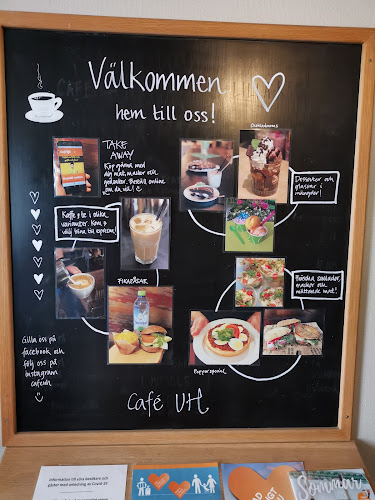 Välkommen
hem till oss!
TAKE
AWAY
Köp gärna med
dig mat, mackor och
godsaker. Beställ online
om du vill!
Chokladmums
Desserter och
glassar i
mängder!
Kaffe & te i olika
varianter. Kom &
välj
FIKAPÅSAR
Härliga sallader,
mackor och
mättande mat!
Gilla oss på
facebook och
följ oss på
instagram
Café UH
Information till våra besökare och
gäster med anledning av Covid-19
Sommar